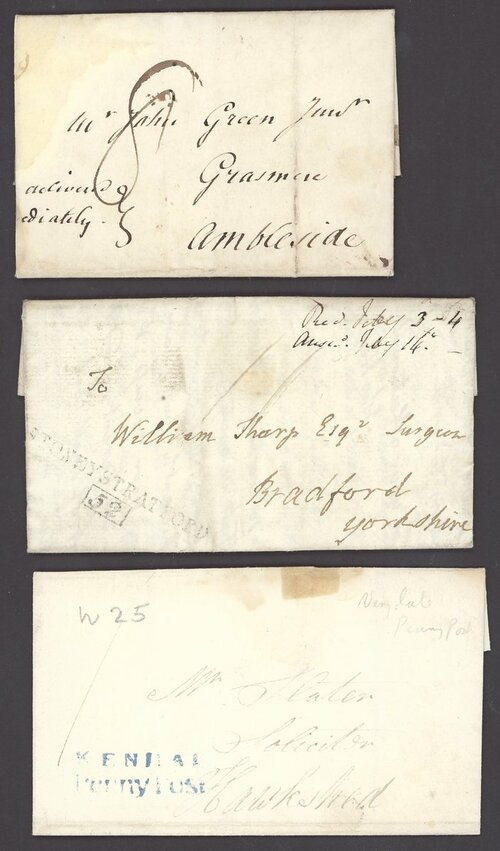 8
Mr John Green Junr
Grasmere
deliver'd
diately
Ambleside
Recd. Feby 3 - 4
Answd. Feby 16th
11
To
William Sharp Esqr Surgeon
Bradford
Yorkshire
STONEY STRATFORD
52
W 25
Very late
Penny Post
1
Mr Slater
Solicitor
Hawkshed
KENDAL
Penny Post